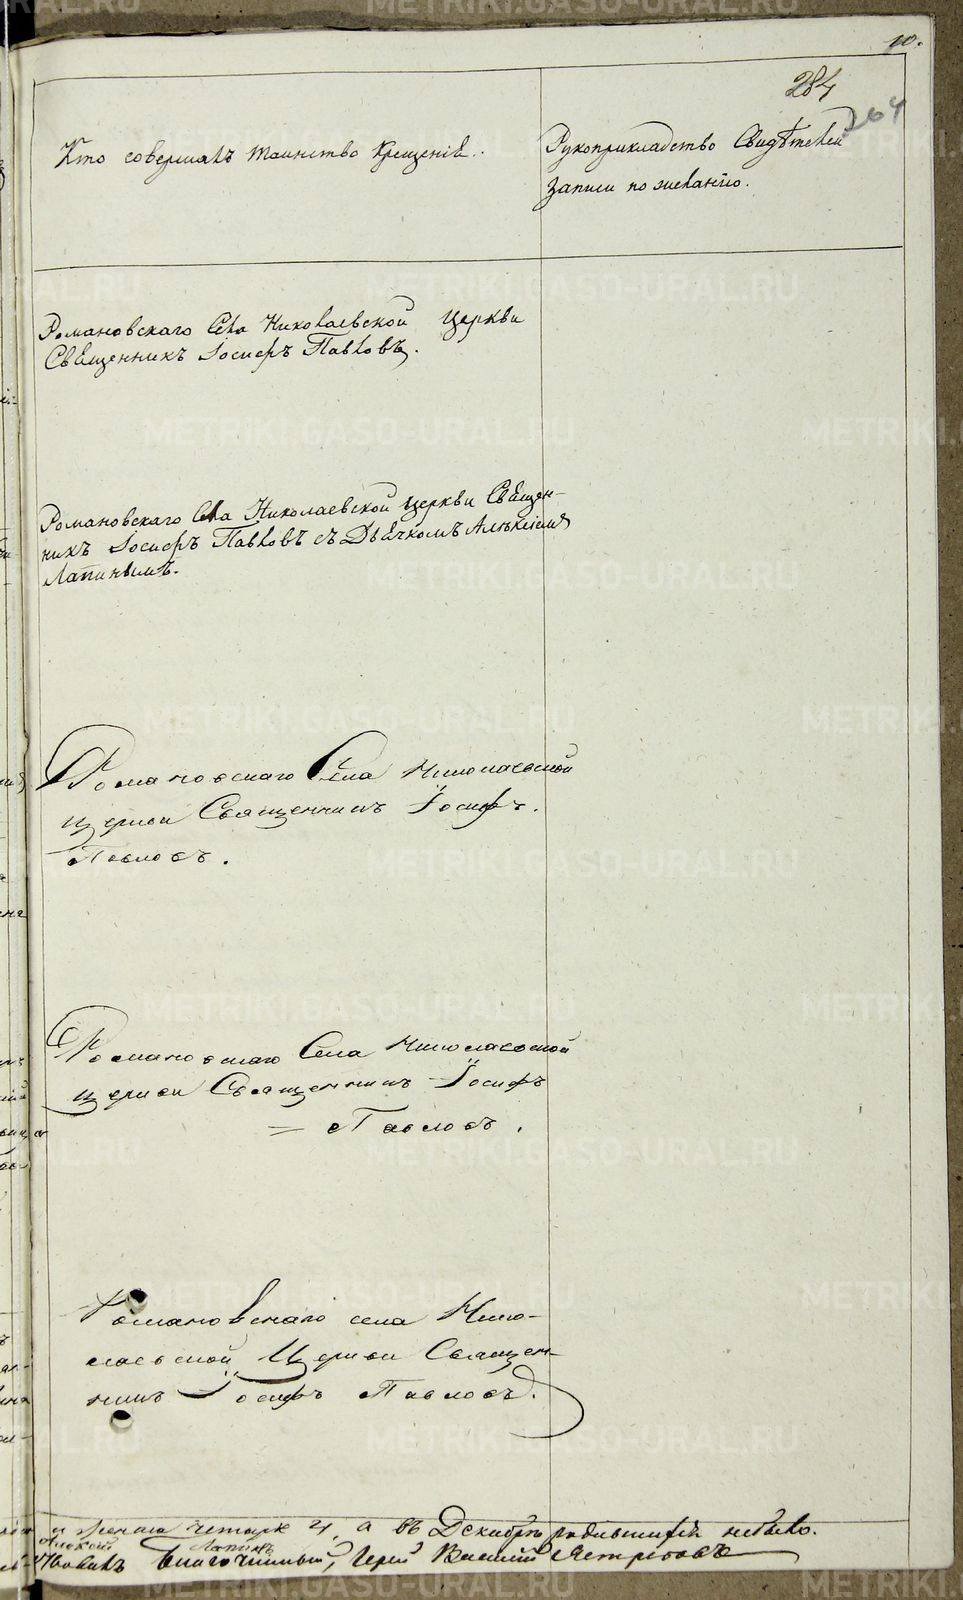 10.
284
264
Кто совершалъ таинство крещенія.
Рукоприкладство Свидѣтелей
записи по желанію.
Романовскаго Села Николаевской Церкви
Священникъ Іосифъ Павловъ.
Романовскаго Села Николаевской церкви Священ-
никъ Іосифъ Павловъ съ Дьячкомъ Алексіемъ
Лапинымъ.
Романовскаго Села Николаевской
церкви Священникъ Іосифъ
Павловъ.
Романовскаго Села Николаевской
церкви Священникъ Іосифъ
= Павловъ.
Романовскаго села Нико-
лаевской Церкви Священ-
никъ Іосифъ Павловъ.
женска четыре 4, а въ Декабрѣ родившихся небыло.
Алексій Лапинъ
Благочинный, Іерей Василій
METRIKI.GASO-URAL.RU